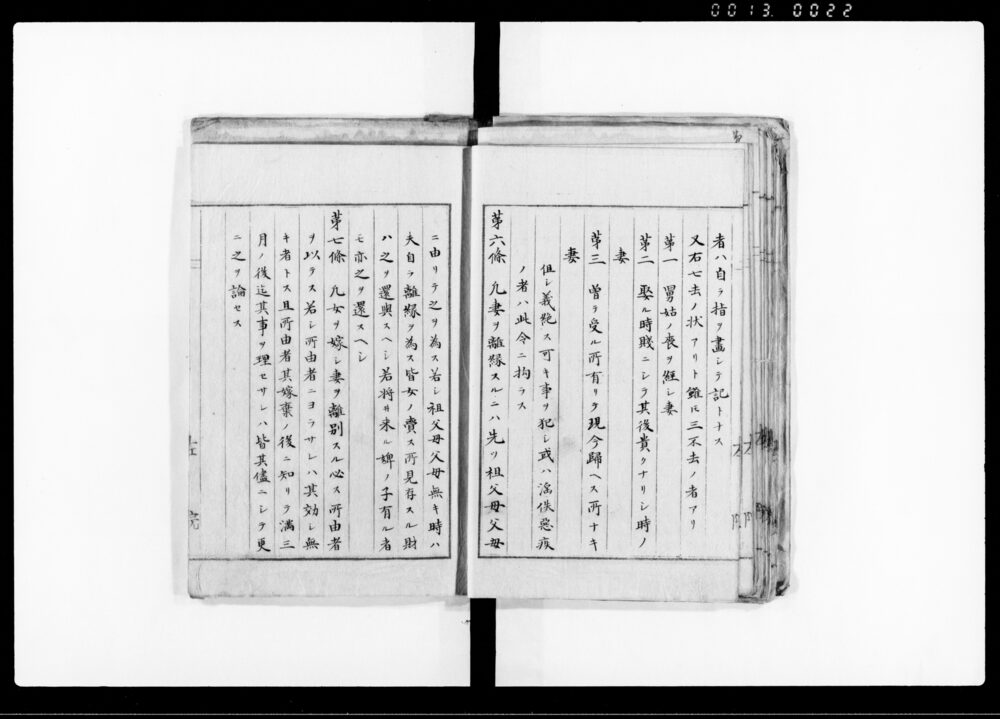 0013 0022
者ハ自ラ指ヲ畫シテ記トナス
又右七去ノ状アリト雖𪜈三不去ノ者アリ
第一 舅姑ノ喪ヲ經シ妻
第二 娶ル時賤ニシテ其後貴クナリシ時ノ
妻
第三 曽テ受ル所有リテ現今歸ヘス所ナキ
妻
但シ義絶ス可キ事ヲ犯シ或ハ淫佚惡疾
ノ者ハ此令ニ拘ラス
第六條 凡妻ヲ離縁スルニハ先ツ祖父母父母
ニ由リテ之ヲ為ス若シ祖父母父母無キ時ハ
夫自ラ離縁ヲ為ス皆女ノ賷ス所見存スル財
ハ之ヲ還與スヘシ若将井来ル婢ノ子有ル者
モ亦之ヲ還スヘシ
第七條 凡女ヲ嫁シ妻ヲ離別スル必ス所由者
ヲ以テス若シ所由者ニヨラサレハ其効シ無
キ者トス且所由者其嫁棄ノ後ニ知リテ満三
月ノ後迄其事ヲ理セサレハ皆其儘ニシテ更
ニ之ヲ論セス
院